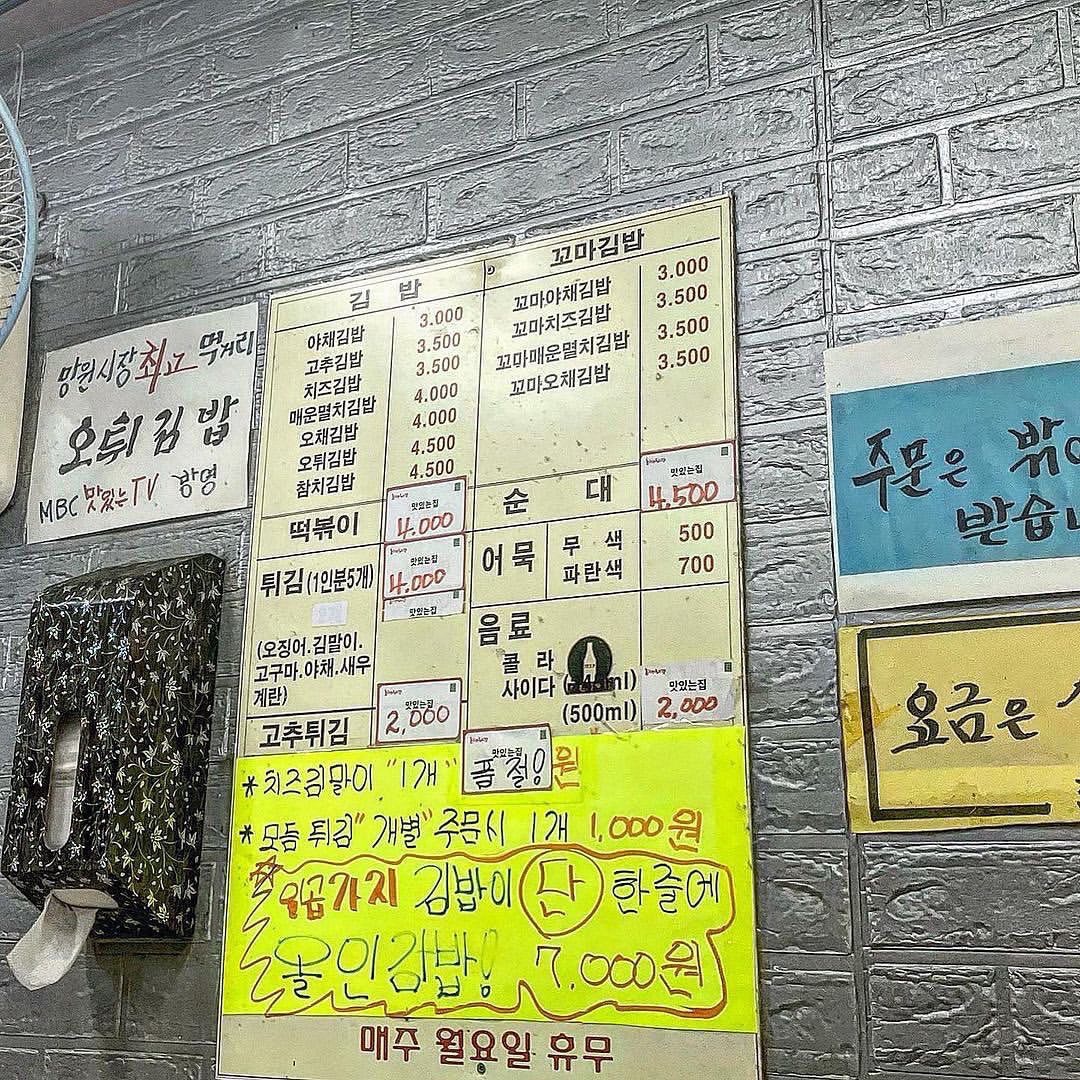 망원시장 최고 먹거리
오튀김밥
MBC 맛있는 TV 방영
김 밥
야채김밥 3.000
고추김밥 3.500
치즈김밥 3.500
매운멸치김밥 4.000
오채김밥 4.000
오튀김밥 4.500
참치김밥 4.500
떡볶이 맛있는집 4.000
튀김(1인분5개) 맛있는집 4.000
맛있는집
(오징어.김말이.
고구마.야채.새우
계란)
고추튀김 맛있는집 2,000
꼬마김밥
꼬마야채김밥 3.000
꼬마치즈김밥 3.500
꼬마매운멸치김밥 3.500
꼬마오채김밥 3.500
순 대 맛있는집 4.500
어묵 무 색 500
파란색 700
음료
콜 라
사이다
(500ml) 맛있는집 2,000
*치즈김말이 "1개" 맛있는집 품절! 원
*모듬 튀김 "개별" 주문시 1개 1,000원
일곱가지 김밥이 단 한줄에
올인김밥! 7.000원
매주 월요일 휴무
주문은
받습
요금은